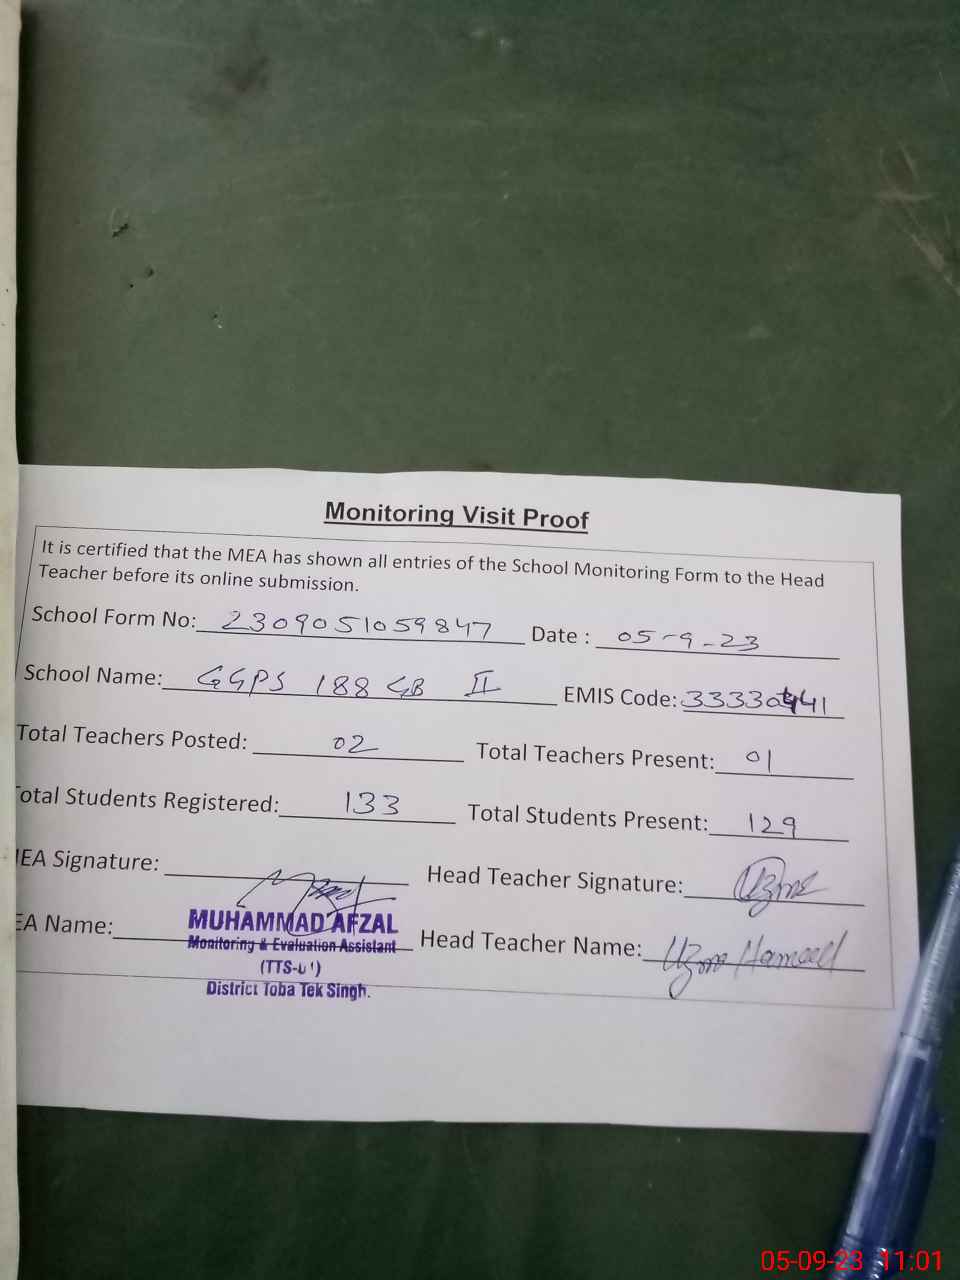 Monitoring Visit Proof
It is certified that the MEA has shown all entries of the School Monitoring Form to the Head
Teacher before its online submission.
School Form No: 2309051059847 Date : 05-9-23
School Name: GGPS 188 GB II EMIS Code:
Total Teachers Posted: 02 Total Teachers Present: 01
otal Students Registered: 133 Total Students Present: 129
EA Signature: Head Teacher Signature: Uzma
EA Name: MUHAMMAD AFZAL Head Teacher Name: Uzma Hameed
Monitoring & Evaluation Assistant
District Toba Tek Singh.
05-09-23 11:01